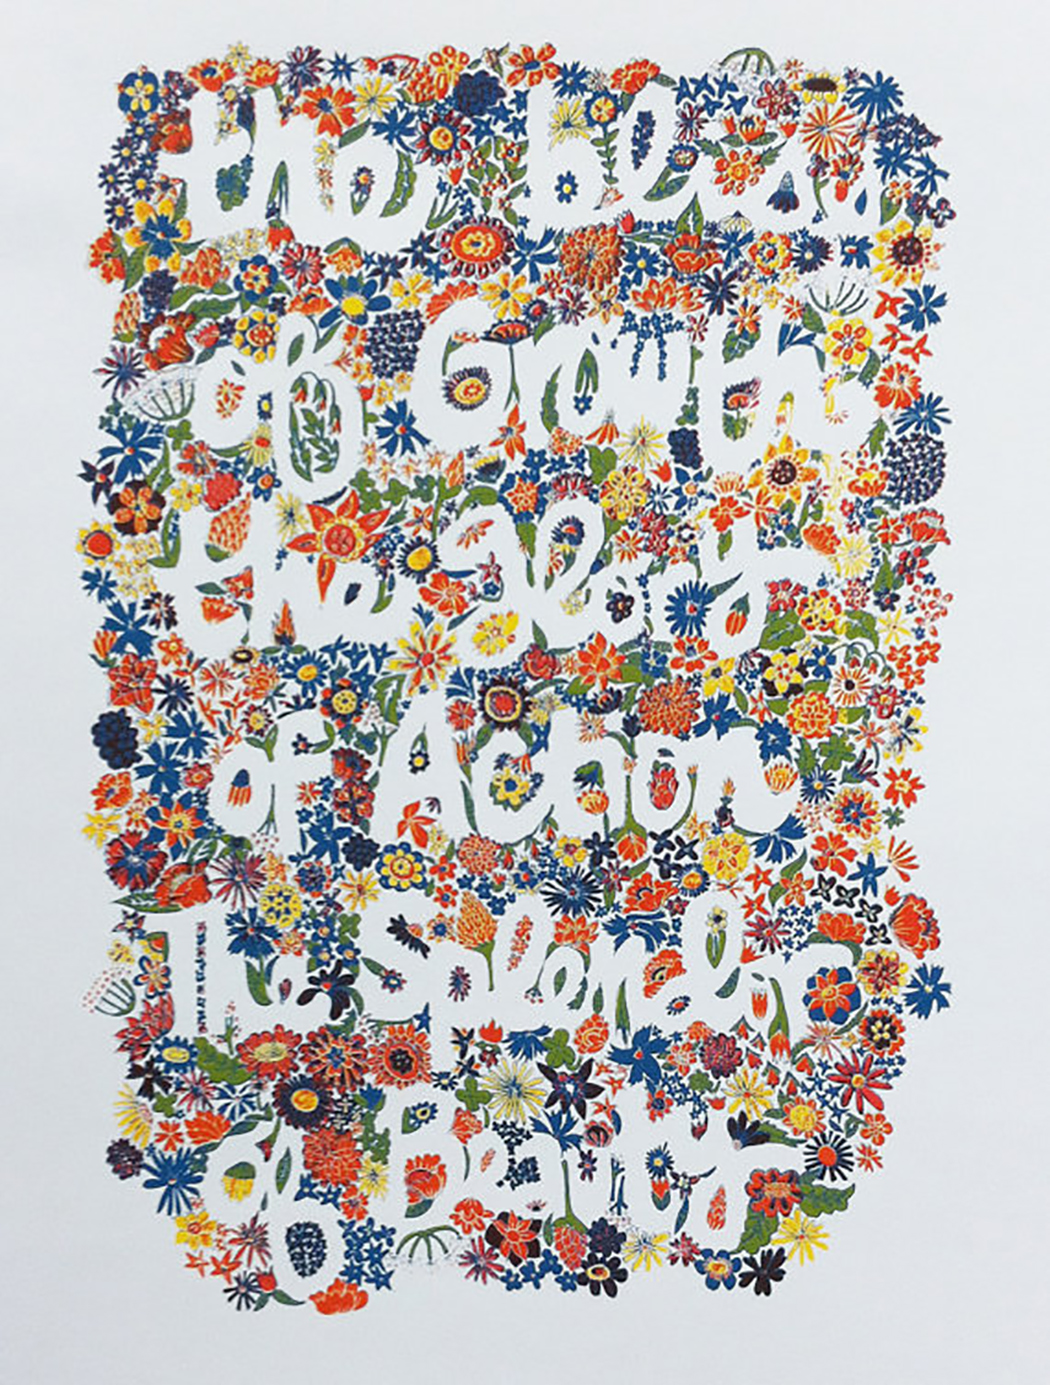 the bliss
of Growth
the glory
of Action
The Splendor
of Beauty